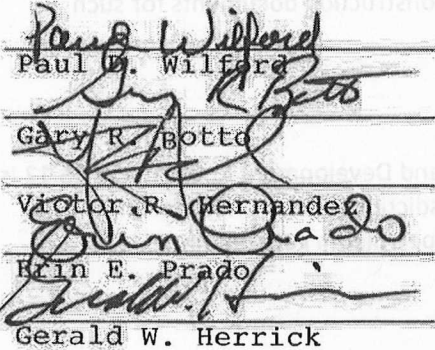 Paul D. Wilford
Paul D. Wilford
Gary R Botto
Gary R. Botto
Victor R. Hernandez
Erin Prado
Erin E. Prado
Gerald W. Herrick